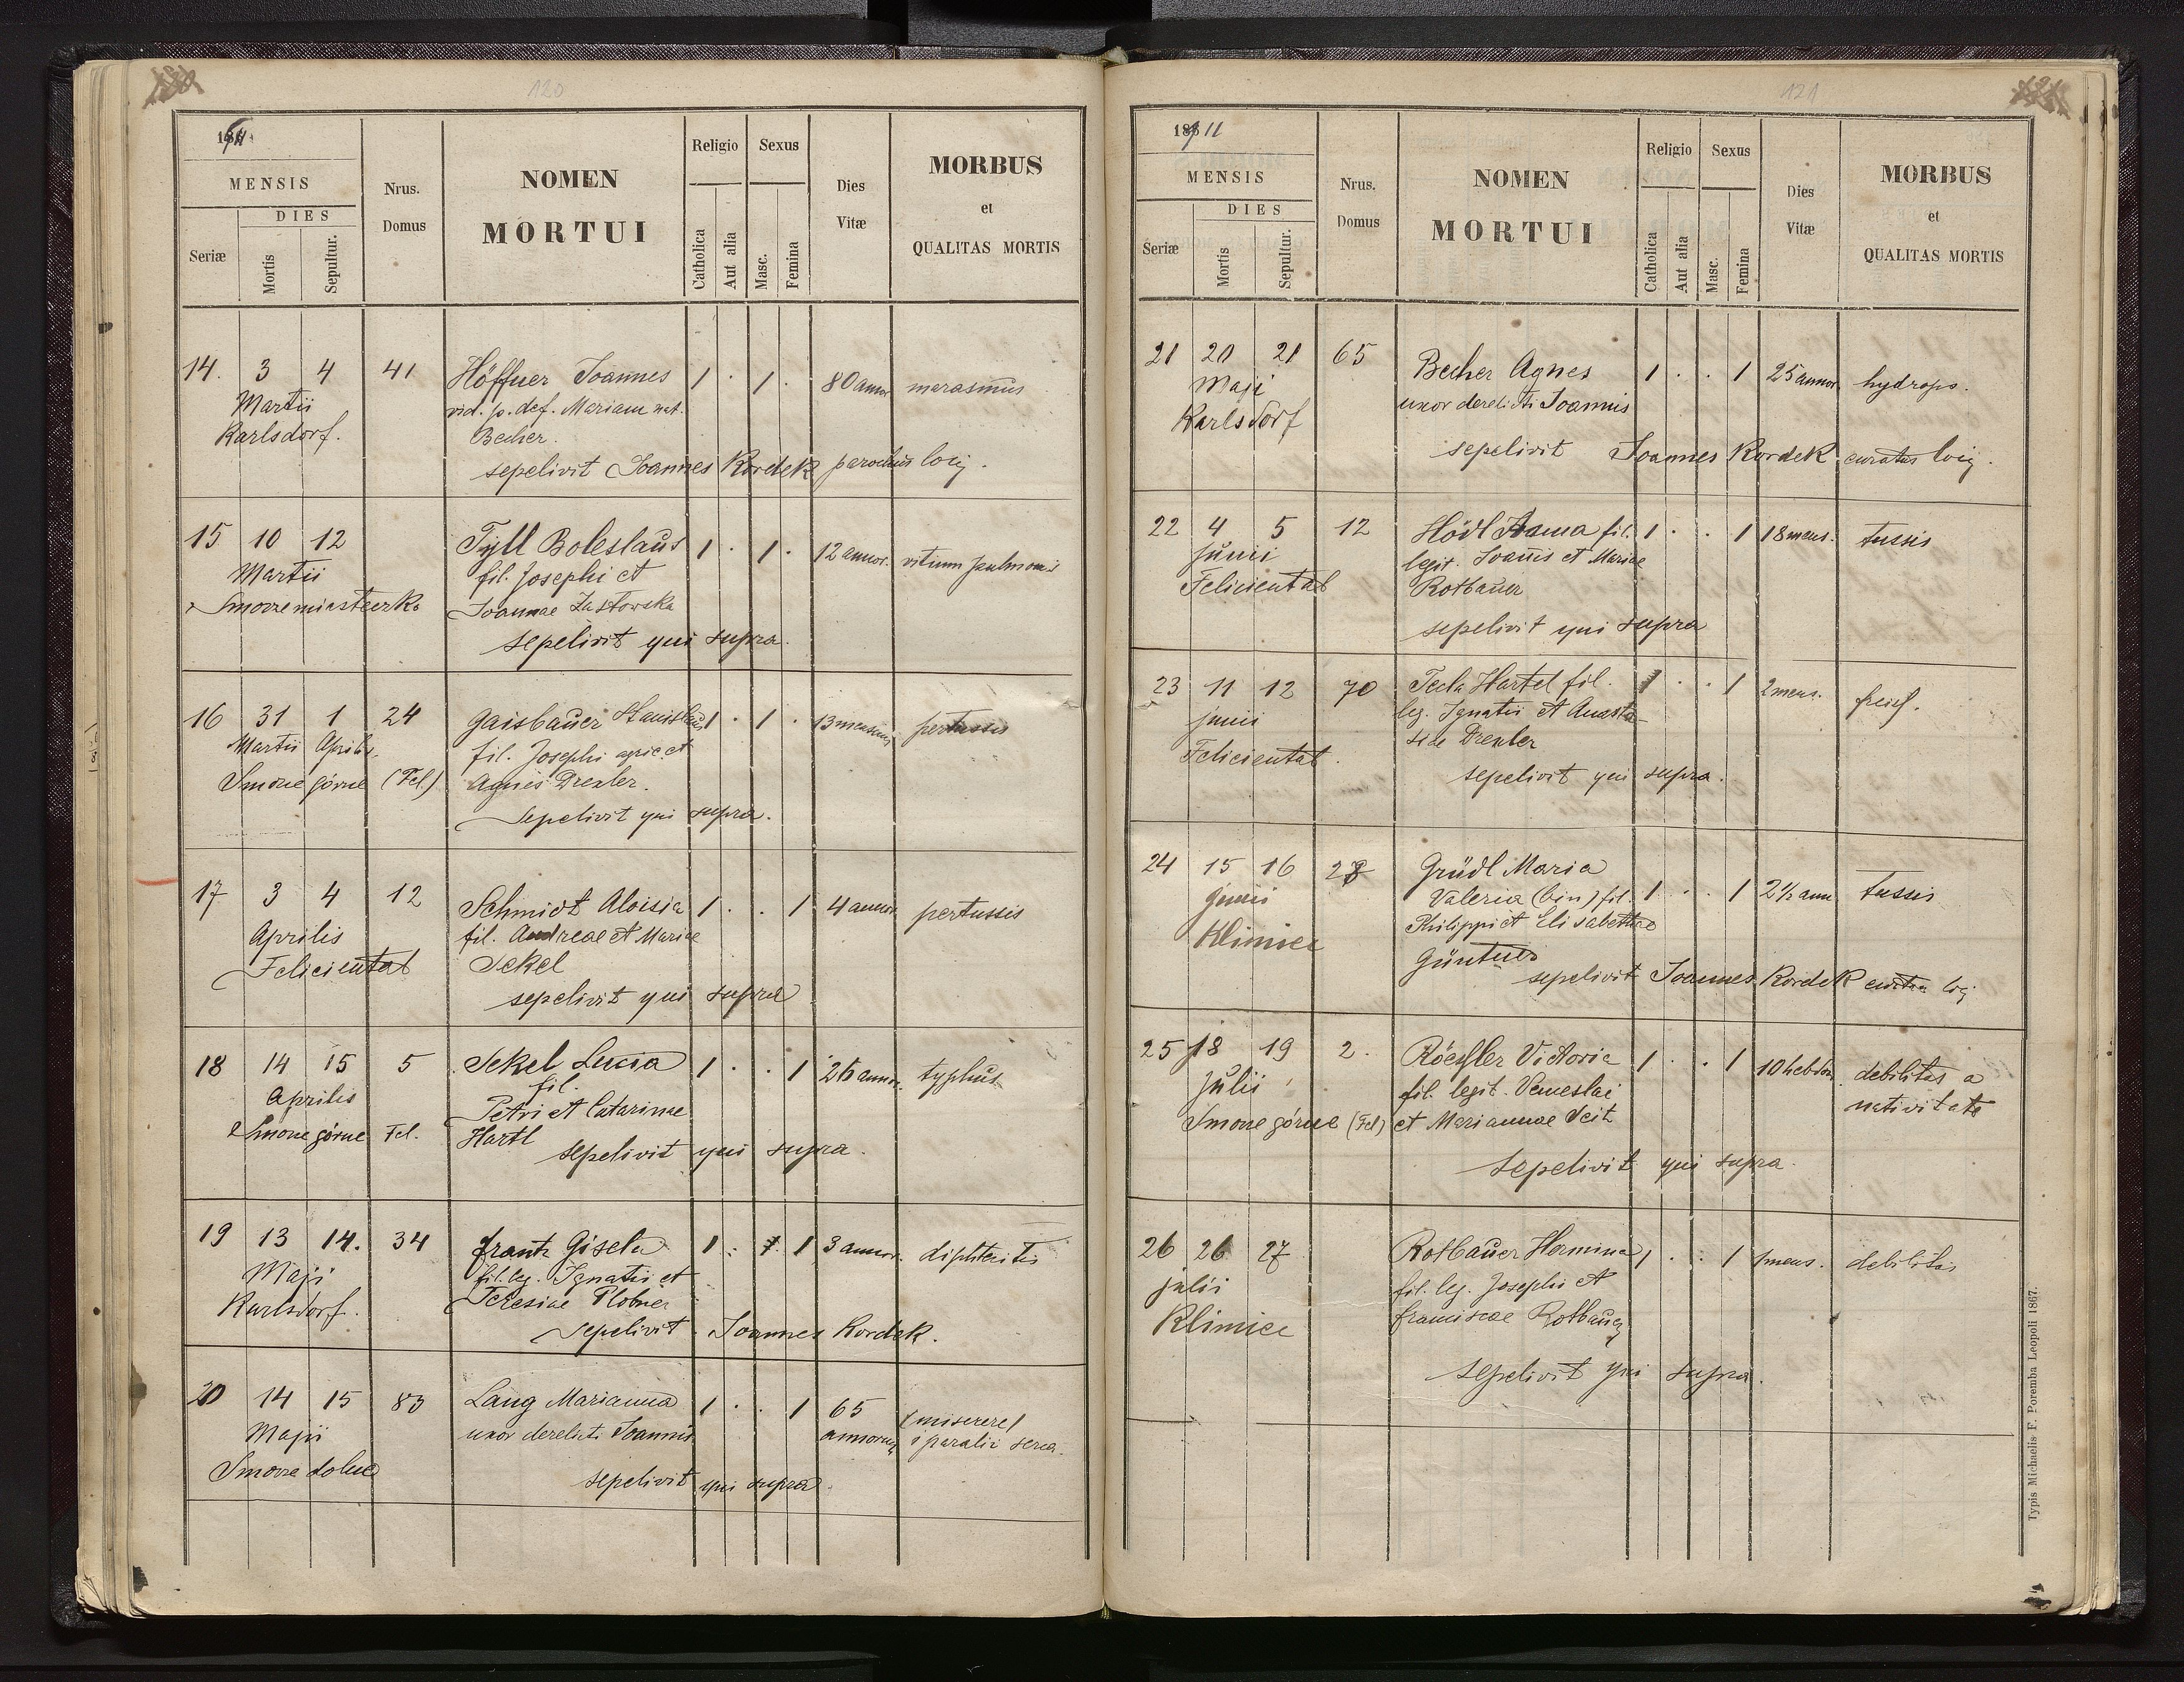 120
1911
MENSIS
DIES
Seriæ
Mortis
Sepultur.
Nrus.
Domus
NOMEN
MORTUI
Religio
Catholica
Aut alia
Sexus
Masc.
Femina
Dies
Vitæ
MORBUS
et
QUALITAS MORTIS
14. 3 4 41 Höffner Joannes 1 · 1 · 80 annor marasmus
Martii vid. p. def. Mariam nat.
Karlsdorf. Becher.
sepelivit Joannes Kordek parochus locij.
15 10 12 Tyll Boleslaus 1 · 1 · 12 annor. vitium pulmonis
Martii fil. Josephi et
Smorzemiasteczko Joannae Zastowska
sepelivit qui supra.
16 31 1 24 Gaisbauer Stanislaus 1 · 1 · 13 mensium pertussis
Martii Aprilis fil. Josephi agric. et
Smorze górne (Fel) Agnes Drexler.
Sepelivit qui supra.
17 3 4 12 Schmidt Aloisia 1 · · 1 4 annor pertussis
Aprilis fil. Andreae et Mariae
Felicientab Sekel
sepelivit qui supra
18 14 15 5 Sekel Lucia 1 · · 1 annor. typhus
fil.
Aprilis Petri et Catarinae
Smorze górne Fel. Hartl
sepelivit qui supra.
19 13 14. 34 Frantz Gisela 1 · 1 3 annor. diphteritis
Maji fil. leg. Ignatii et
Karlsdorf. Teresiae Plobner
Sepelivit Joannes Kordek.
20 14 15 83 Lang Marianna 1 · · 1 65 (miserere)
Maji uxor derelicti Joannis annorum
Smorze dolne
sepelivit qui supra.
121
1911
MENSIS
DIES
Seriæ
Mortis
Sepultur.
Nrus.
Domus
NOMEN
MORTUI
Religio
Catholica
Aut alia
Sexus
Masc.
Femina
Dies
Vitæ
MORBUS
et
QUALITAS MORTIS
21 20 21 65 Becher Agnes 1 · · 1 25 annor. hydrops.
Maji uxor derelicti Joannis
Karlsdorf
sepelivit Joannes Kordek curatus locij.
22 4 5 12 Hödl Anna fil. 1 · · 1 18 mens. tussis
Junii legit. Joannis et Mariae
Felicientab Rotbauer
sepelivit qui supra
23 11 12 70 Tecla Hartel fil. 1 · · 1 2 mens.
junii leg. Ignatii et Anasta-
Felicientab. siae Drexler
sepelivit qui supra.
24 15 16 28 Gründl Maria
junii Valeria (bin) fil. 1 · · 1 2½ ann tussis
Klimiec Philippi et Elisabethae
Güntner
sepelivit Joannes Kordek locij
25 18 19 2. Röessler Victoria 1 · · 1 10 hebdom. debilitas a
Julii fil. legit. Venceslai nativitate
Smorze górne (Fel) et Mariannae Veit
sepelivit qui supra.
26 26 27 Rotbauer Hermina 1 · · 1 1 mens. debilitas
julii fil. leg. Josephi et
Klimiec Franciscae Rotbauer
sepelivit qui supra.
Typis Michaelis F. Poremba Leopoli 1867.